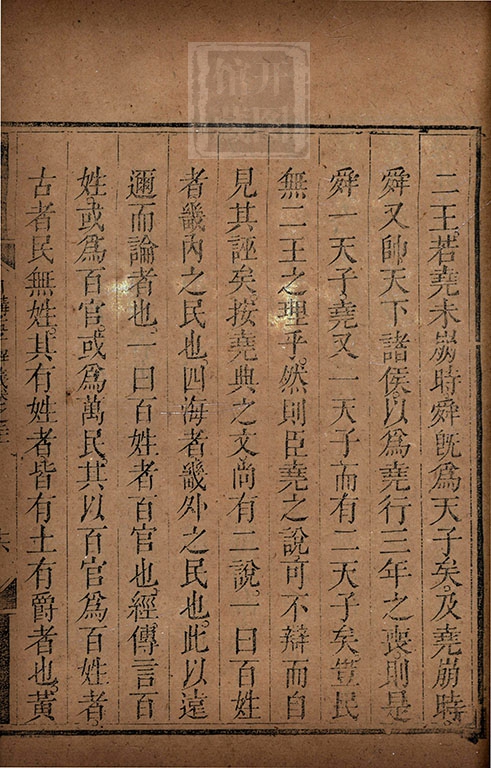 二王若堯未崩時舜既爲天子矣及堯崩時
舜又帥天下諸侯以爲堯行三年之喪則是
舜一天子堯又一天子而有二天子矣豈民
無二王之理乎然則臣堯之說可不辯而自
見其誣矣按堯典之文尚有二說一曰百姓
者畿內之民也四海者畿外之民也此以遠
邇而論者也一曰百姓者百官也經傳言百
姓或爲百官或爲萬民其以百官爲百姓者
古者民無姓其有姓者皆有土有爵者也黃